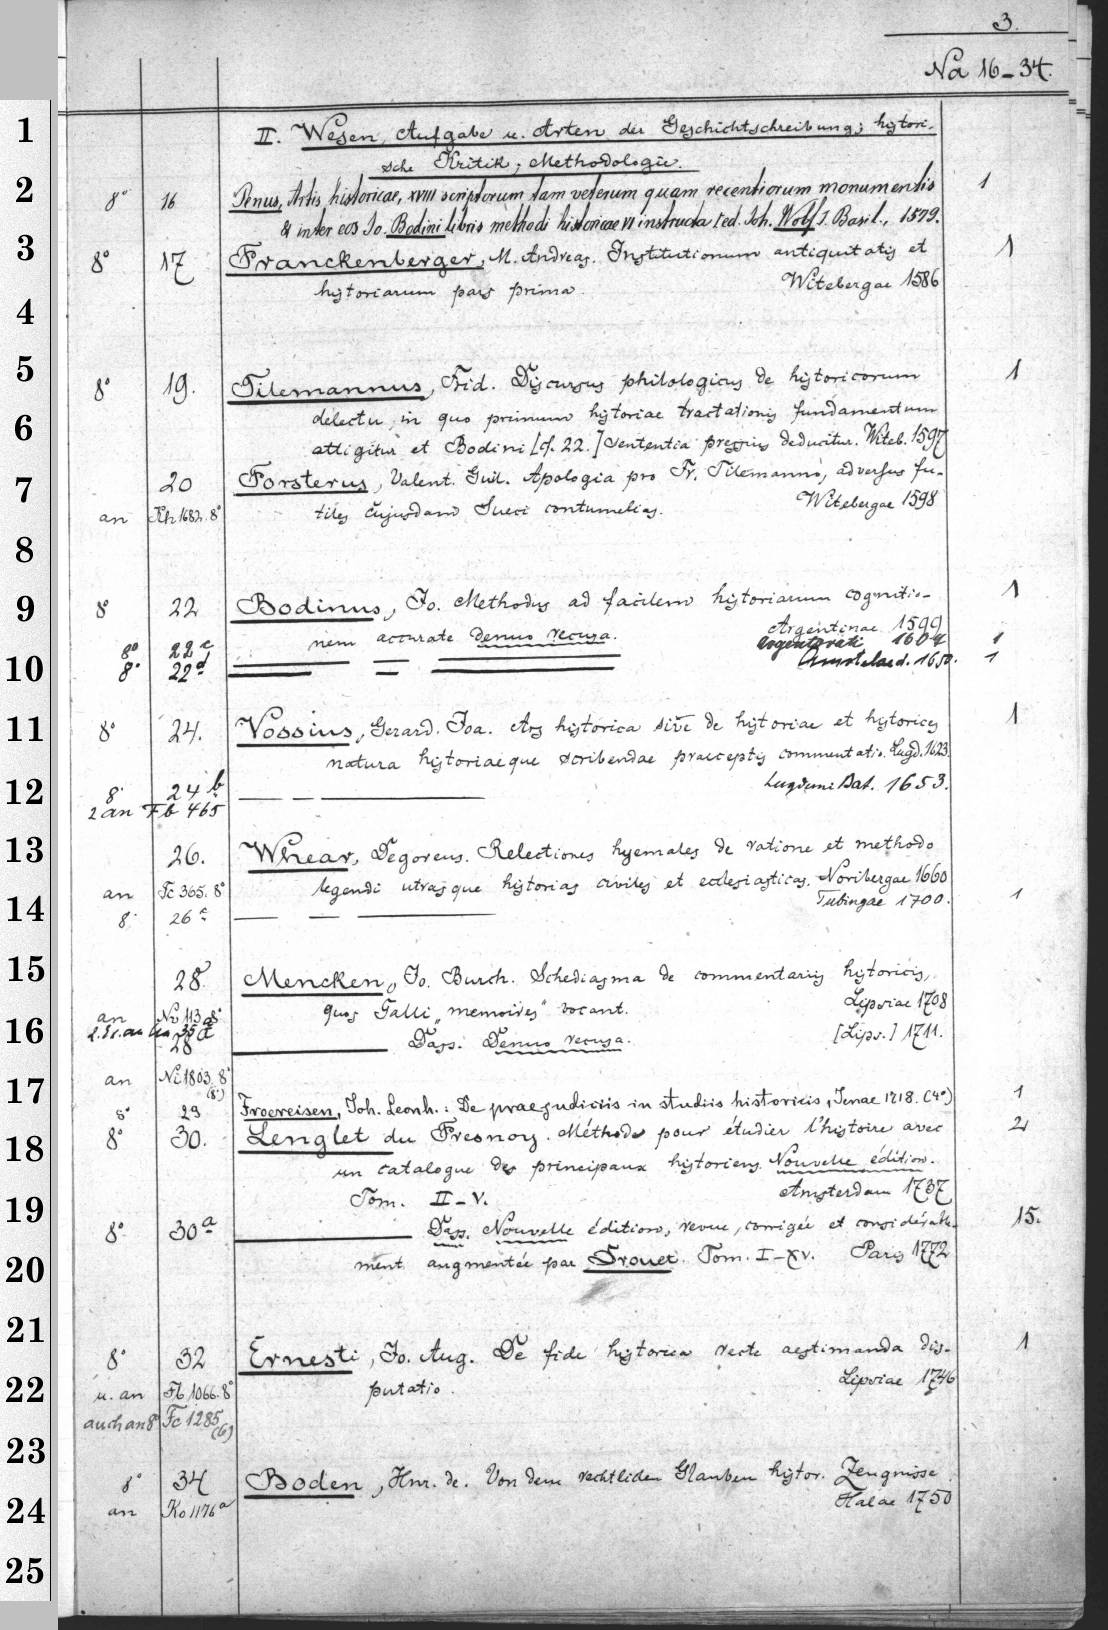 3.
Na 16-34.
1
II. Wesen, Aufgabe u. Arten der Geschichtschreibung; histori-
sche Kritik; Methodologie.
2
8° 16 Penus, Artis historicae, XVIII scriptorum tam veterum quam recentiorum monumentis 1
& inter eos Jo. Bodini libris methodi historicae VI instructa [ed. Joh. Wolf]. Basil., 1579.
3
8° 17 Franckenberger, M. Andreas. Institutionum antiquitatis et 1
historiarum pars prima. Witebergae 1586
4
5
8° 19. Tilemannus, Frid. Discursus philologicus de historicorum 1
6
delectu, in quo primum historiae tractationis fundamentum
attigitur et Bodini [cf. 22.] sententia pressius deducitur. Witeb. 1597
7
20 Forsterus, Valent. Guil. Apologia pro Fr. Tilemanno, adversus fu-
an Kh 1682. 8° tiles cujusdam Sueci contumelias. Witebergae 1598
8
9
8° 22 Bodinus, Jo. Methodus ad facilem historiarum cognitio- 1
nem accurate denuo recusa. Argentinae 1599
8° 22 c Argentorati 1607 1
10
8° 22 d Amstelaed. 1650. 1
11
8° 24. Vossius, Gerard. Joa. Ars historica sive de historiae et historices 1
natura historiaeque scribendae praeceptis commentatio. Lugd. 1623.
12
8° 24 b Lugduni Bat. 1653.
2 an Fb 465
13
26. Whear, Degoreus. Relectiones hyemales de ratione et methodo
an Fc 365. 8° legendi utrasque historias civiles et ecclesiasticas. Noribergae 1660
14
8° 26 a Tubingae 1700. 1
15
28. Mencken, Jo. Burch. Schediasma de commentariis historicis,
an quos Galli „memoires" vocant. Lipsiae 1708
16
28 Dass. Denuo recusa. [Lips.] 1711.
17
an Ni 1803. 8°
(8.)
8° 29 Froereisen, Joh. Leonh.: De praejudiciis in studiis historicis, Jenae 1718. (4°) 1
18
8° 30. Lenglet du Fresnoy. Méthode pour étudier l'histoire avec 2
un catalogue des principaux historiens. Nouvelle édition.
19
Tom. II-V. Amsterdam 1737
8° 30 a Dass. Nouvelle édition, revue, corrigée et considérable- 15.
20
ment augmentée par Drouet. Tom. I-XV. Paris 1772
21
8° 32 Ernesti, Jo. Aug. De fide historica recte aestimanda dis- 1
22
u. an Fb 1066. 8° putatio. Lipsiae 1746
auch an 8° Fc 1285
(6)
23
8° 34 Boden, Hnr. de. Von dem rechtlichen Glauben histor. Zeugnisse.
24
an Ko 1176 a Halae 1750
25